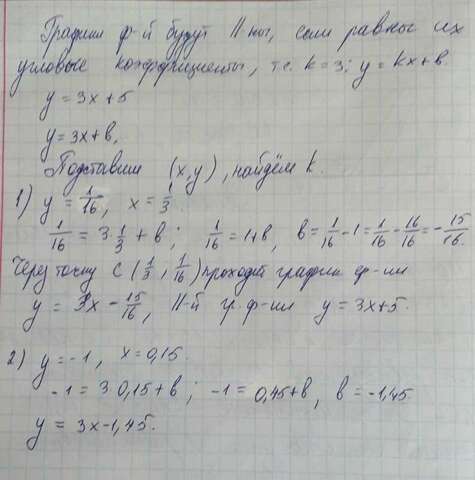 Графики ф-й будут II-ны, если равны их
угловые коэффициенты, т.е. k = 3; y = kx+в.
y = 3x + 5
y = 3x + в,
Подставим (x,y), найдём k.
1) y = 1/16, x = 1/3.
1/16 = 3·1/3 + в; 1/16 = 1+в, в = 1/16 - 1 = 1/16 - 16/16 = - 15/16.
Через точку C (1/3, 1/16) проходит график ф-ии
y = 3x - 15/16, II-й гр. ф-ии y = 3x+5.
2) y = -1, x = 0,15.
-1 = 3·0,15 + в; -1 = 0,45 + в, в = -1,45
y = 3x - 1,45.